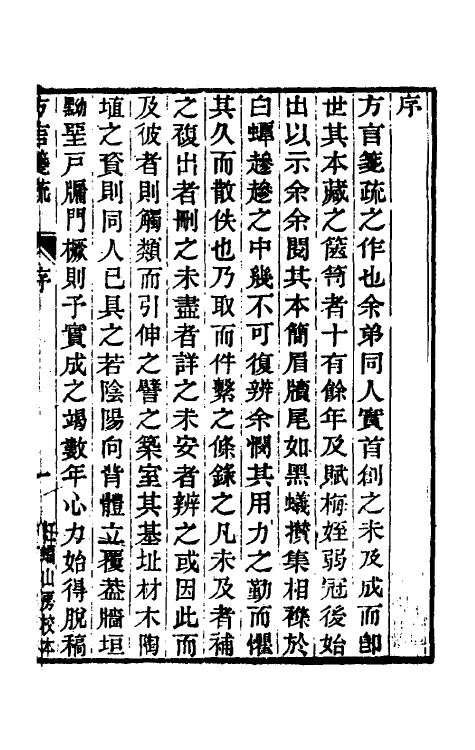 序
方言箋疏之作也余弟同人實首創之未及成而卽
世其本藏之篋笥者十有餘年及賦梅姪弱冠後始
出以示余余閱其本簡眉牘尾如黑蟻攢集相襍於
白蟫趁趁之中幾不可復辨余憫其用力之勤而懼
其久而散佚也乃取而件繫之條錄之凡未及者補
之複出者刪之未盡者詳之未安者辨之或因此而
及彼者則觸類而引伸之譬之築室其基址材木陶
埴之資則同人已具之若陰陽向背體立覆葢牆垣
黝堊戸牖門橛則予實成之竭數年心力始得脫稿
方言箋疏 序 一 紅蝠山房校本